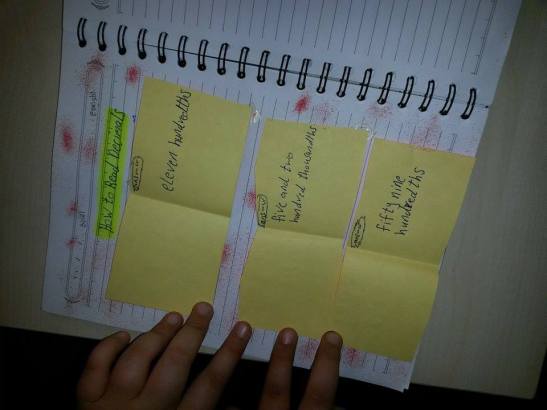 How to Read Decimals
eleven hundredths
five and two
hundred thousandths
fifty nine
hundredths